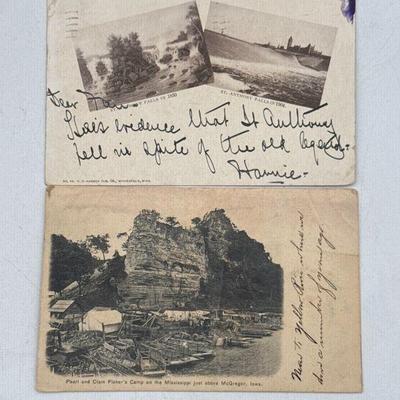 FALLS IN 1850
ST. ANTHONY FALLS IN 1902.
Dear
evidence that St Anthony
fell in spite of the old legend.
Hannie-
Pearl and Clam Fisher's Camp on the Mississippi just above McGregor, Iowa.
Near to Yellow River where we
had a number of years ago.